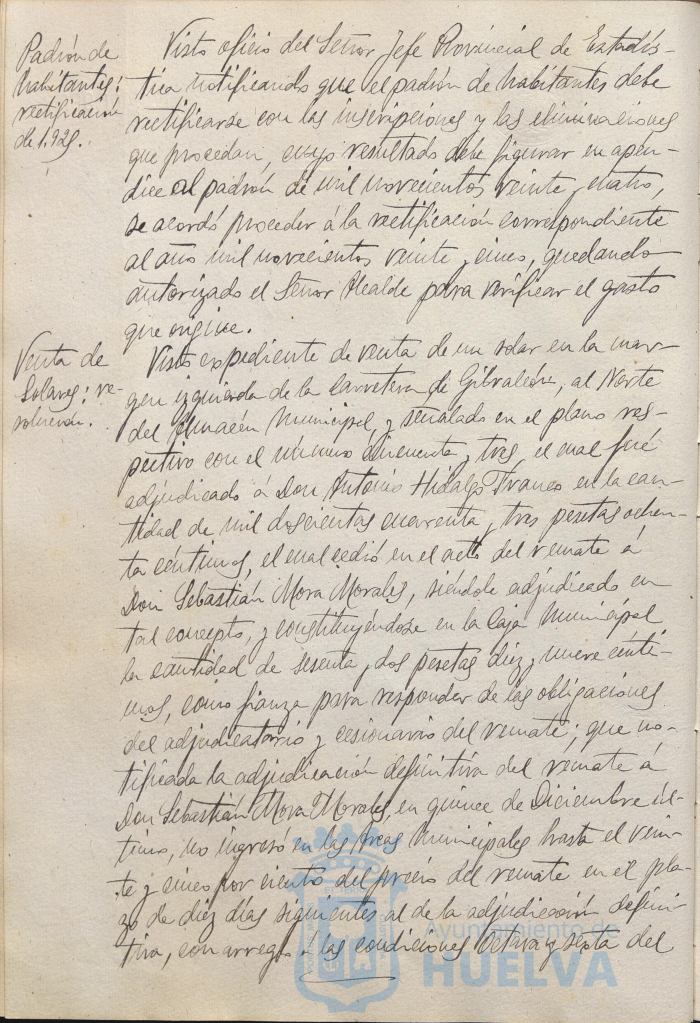 Padrón de
habitantes:
rectificación
de 1.925.
Visto oficio del Señor Jefe Provincial de Estadís-
tica notificando que el padrón de habitantes debe
rectificarse con las inscripciones y las eliminaciones
que procedan, cuyo resultado debe figurar en apén-
dice al padrón de mil novecientos veinte y cuatro,
se acordó proceder á la rectificación correspondiente
al año mil novecientos veinte y cinco, quedando
autorizado el Señor Alcalde para verificar el gasto
que origine.
Venta de
Solares: re-
solución.
Visto expediente de venta de un solar en la mar-
gen izquierda de la Carretera de Gibraleón, al Norte
del Almacén Municipal, y señalado en el plano res-
pectivo con el número cincuenta y tres, el cual fué
adjudicado á Don Antonio Hidalgo Franco en la can-
tidad de mil doscientas cuarenta y tres pesetas ochen-
ta céntimos, el cual cedió en el acto del remate á
Don Sebastián Mora Morales, siéndole adjudicado en
tal concepto, y constituyéndose en la Caja Municipal
la cantidad de sesenta y dos pesetas diez y nueve cénti-
mos, como fianza para responder de las obligaciones
del adjudicatario y cesionario del remate; que no-
tificada la adjudicación definitiva del remate á
Don Sebastián Mora Morales, en quince de Diciembre úl-
timo, no ingresó en las Arcas Municipales hasta el vein-
te y cinco por ciento del precio del remate en el pla-
zo de diez días siguientes al de la adjudicación defini-
tiva, con arreglo a las condiciones octava y sexta del
Ayuntamiento de
HUELVA